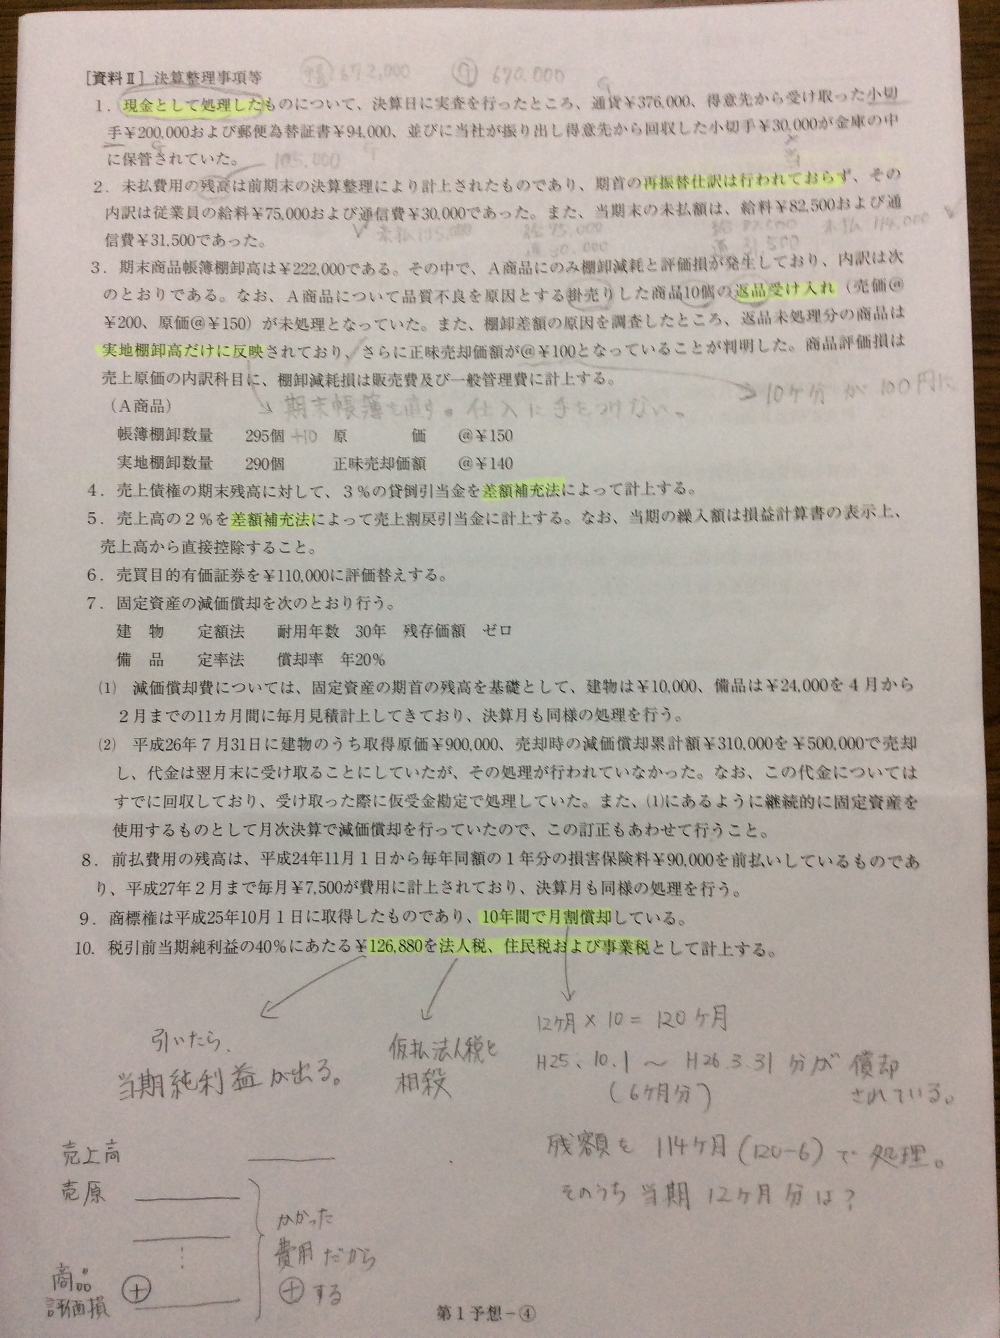 ［資料Ⅱ］ 決算整理事項等
672,000
670,000
１．現金として処理したものについて、決算日に実査を行ったところ、通貨¥376,000、得意先から受け取った小切
手¥200,000および郵便為替証書¥94,000、並びに当社が振り出し得意先から回収した小切手¥30,000が金庫の中
に保管されていた。
105,000
２．未払費用の残高は前期末の決算整理により計上されたものであり、期首の再振替仕訳は行われておらず、その
内訳は従業員の給料¥75,000および通信費¥30,000であった。また、当期末の未払額は、給料¥82,500および通
信費¥31,500であった。
未払105,000 給75,000 給82,500 未払114,000
通30,000 通31,500
３．期末商品帳簿棚卸高は¥222,000である。その中で、Ａ商品にのみ棚卸減耗と評価損が発生しており、内訳は次
のとおりである。なお、Ａ商品について品質不良を原因とする掛売りした商品10個の返品受け入れ（売価@
¥200、原価@¥150）が未処理となっていた。また、棚卸差額の原因を調査したところ、返品未処理分の商品は
実地棚卸高だけに反映されており、さらに正味売却価額が@¥100となっていることが判明した。商品評価損は
売上原価の内訳科目に、棚卸減耗損は販売費及び一般管理費に計上する。
10ケ分が100円に
（Ａ商品）
期末帳簿を直す。仕入に手をつけない。
帳簿棚卸数量 295個 +10 原 価 @¥150
実地棚卸数量 290個 正味売却価額 @¥140
４．売上債権の期末残高に対して、３％の貸倒引当金を差額補充法によって計上する。
５．売上高の２％を差額補充法によって売上割戻引当金に計上する。なお、当期の繰入額は損益計算書の表示上、
売上高から直接控除すること。
６．売買目的有価証券を¥110,000に評価替えする。
７．固定資産の減価償却を次のとおり行う。
建 物 定額法 耐用年数 30年 残存価額 ゼロ
備 品 定率法 償却率 年20％
⑴ 減価償却費については、固定資産の期首の残高を基礎として、建物は¥10,000、備品は¥24,000を４月から
２月までの11カ月間に毎月見積計上してきており、決算月も同様の処理を行う。
⑵ 平成26年７月31日に建物のうち取得原価¥900,000、売却時の減価償却累計額¥310,000を¥500,000で売却
し、代金は翌月末に受け取ることにしていたが、その処理が行われていなかった。なお、この代金については
すでに回収しており、受け取った際に仮受金勘定で処理していた。また、⑴にあるように継続的に固定資産を
使用するものとして月次決算で減価償却を行っていたので、この訂正もあわせて行うこと。
８．前払費用の残高は、平成24年11月１日から毎年同額の１年分の損害保険料¥90,000を前払いしているものであ
り、平成27年２月まで毎月¥7,500が費用に計上されており、決算月も同様の処理を行う。
９．商標権は平成25年10月１日に取得したものであり、10年間で月割償却している。
10．税引前当期純利益の40％にあたる¥126,880を法人税、住民税および事業税として計上する。
引いたら、
当期純利益が出る。
仮払法人税と
相殺
12ケ月×10＝120ケ月
H25、10.1～H26.3.31分が償却
（6ケ月分） されている。
残額を114ケ月（120-6）で処理。
そのうち当期12ケ月分は？
売上高
売原
かかった
費用だから
⊕する
商品
評価損 ⊕
第１予想－④